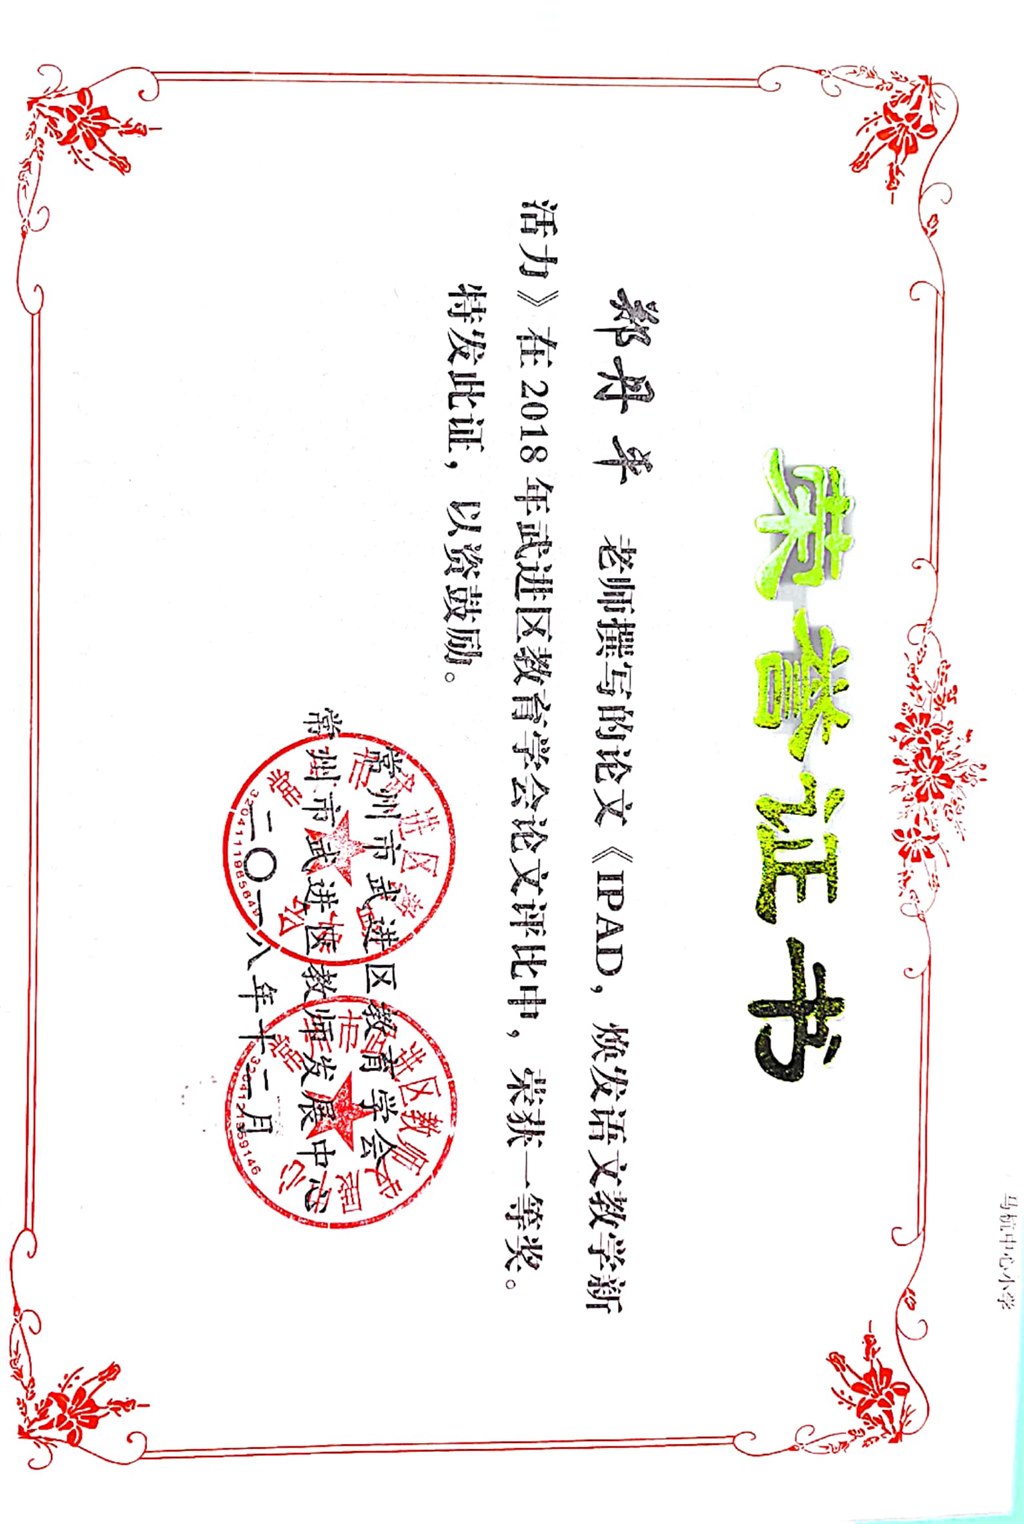 马杭中心小学
荣誉证书
郑丹平 老师撰写的论文《IPAD，焕发语文教学新
活力》在 2018 年武进区教育学会论文评比中，荣获一等奖。
特发此证，以资鼓励。
常州市武进区教育学会
常州市武进区教师发展中心
二〇一八年十二月